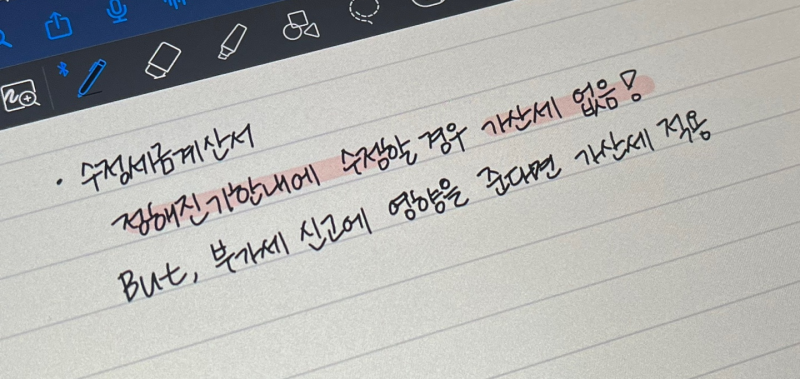 · 수정세금계산서
정해진기한내에 수정할 경우 가산세 없음!
But, 부가세 신고에 영향을 준다면 가산세 적용